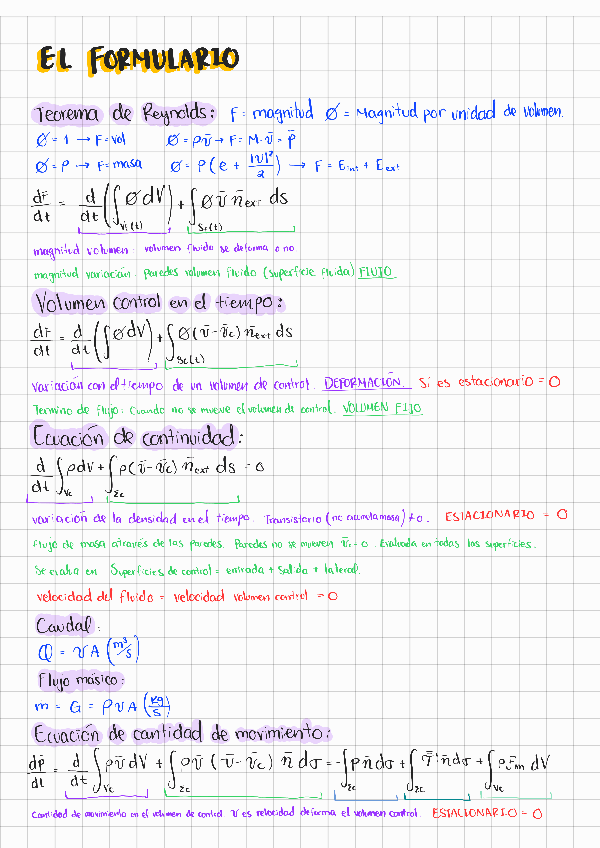 EL FORMULARIO
Teorema de Reynolds: F = magnitud ∅ = Magnitud por unidad de volumen.
∅ = 1 → F = Vol ∅ = ρv̄ → F = M·v̄ = p̄
∅ = ρ → F = masa ∅ = ρ(e + |v|²/2) → F = Eint + Eext
dF/dt = d/dt (∫Vf(t) ∅ dV) + ∫Sf(t) ∅ v̄ n̄ext ds
magnitud volumen: volumen fluido se deforma o no
magnitud variación: paredes volumen fluido (superficie fluida) FLUJO
Volumen control en el tiempo:
dF/dt = d/dt (∫∅ dV) + ∫Sc(t) ∅(v̄ - v̄c) n̄ext ds
variación con el tiempo de un volumen de control. DEFORMACIÓN. Si es estacionario = 0
Termino de flujo: cuando no se mueve el volumen de control. VOLUMEN FIJO
Ecuación de continuidad:
d/dt ∫Vc ρdV + ∫Σc ρ(v̄ - v̄c) n̄ext ds = 0
variación de la densidad en el tiempo. Transitorio (no acumula masa) ≠ 0. ESTACIONARIO = 0
Flujo de masa a través de las paredes. Paredes no se mueven v̄c = 0. Evaluada en todas las superficies.
Se evalua en Superficies de control = entrada + salida + lateral.
velocidad del fluido = velocidad volumen control = 0
Caudal:
Q = vA (m³/s)
Flujo másico:
m = G = ρvA (kg/s)
Ecuación de cantidad de movimiento:
dp̄/dt = d/dt ∫Vc ρv̄ dV + ∫Σc ρv̄ (v̄ - v̄c) n̄ dσ = -∫Σc p n̄ dσ + ∫Σc τ̄' n̄ dσ + ∫Vc ρf̄m dV
Cantidad de movimiento en el volumen de control. v es velocidad deforma el volumen control. ESTACIONARIO = 0